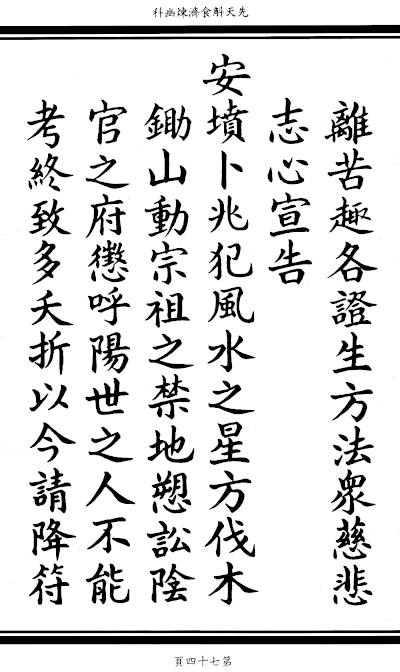 先天斛食濟煉幽科
離苦趣各證生方法衆慈悲
志心宣告
安墳卜兆犯風水之星方伐木
鋤山動宗祖之禁地愬訟陰
官之府懲呼陽世之人不能
考終致多夭折以今請降符
第七十四頁